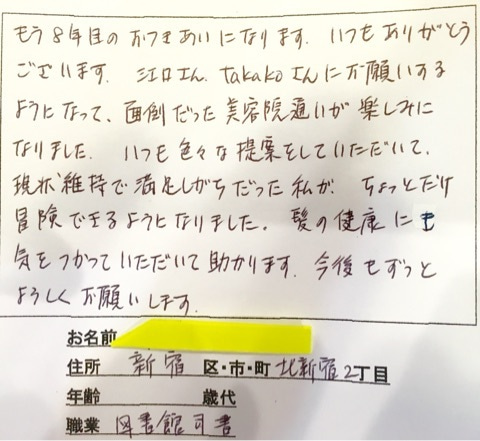 もう8年目のおつきあいになります。いつもありがとう
ございます。江口さん、takakoさんにお願いする
ようになって、面倒だった美容院通いが楽しみに
なりました。いつも色々な提案をしていただいて、
現状維持で満足しがちだった私が、ちょっとだけ
冒険できるようになりました。髪の健康にも
気をつかっていただいて助かります。今後もずっと
よろしくお願いします。
お名前
住所 新宿 区・市・町 北新宿2丁目
年齢 歳代
職業 図書館司書